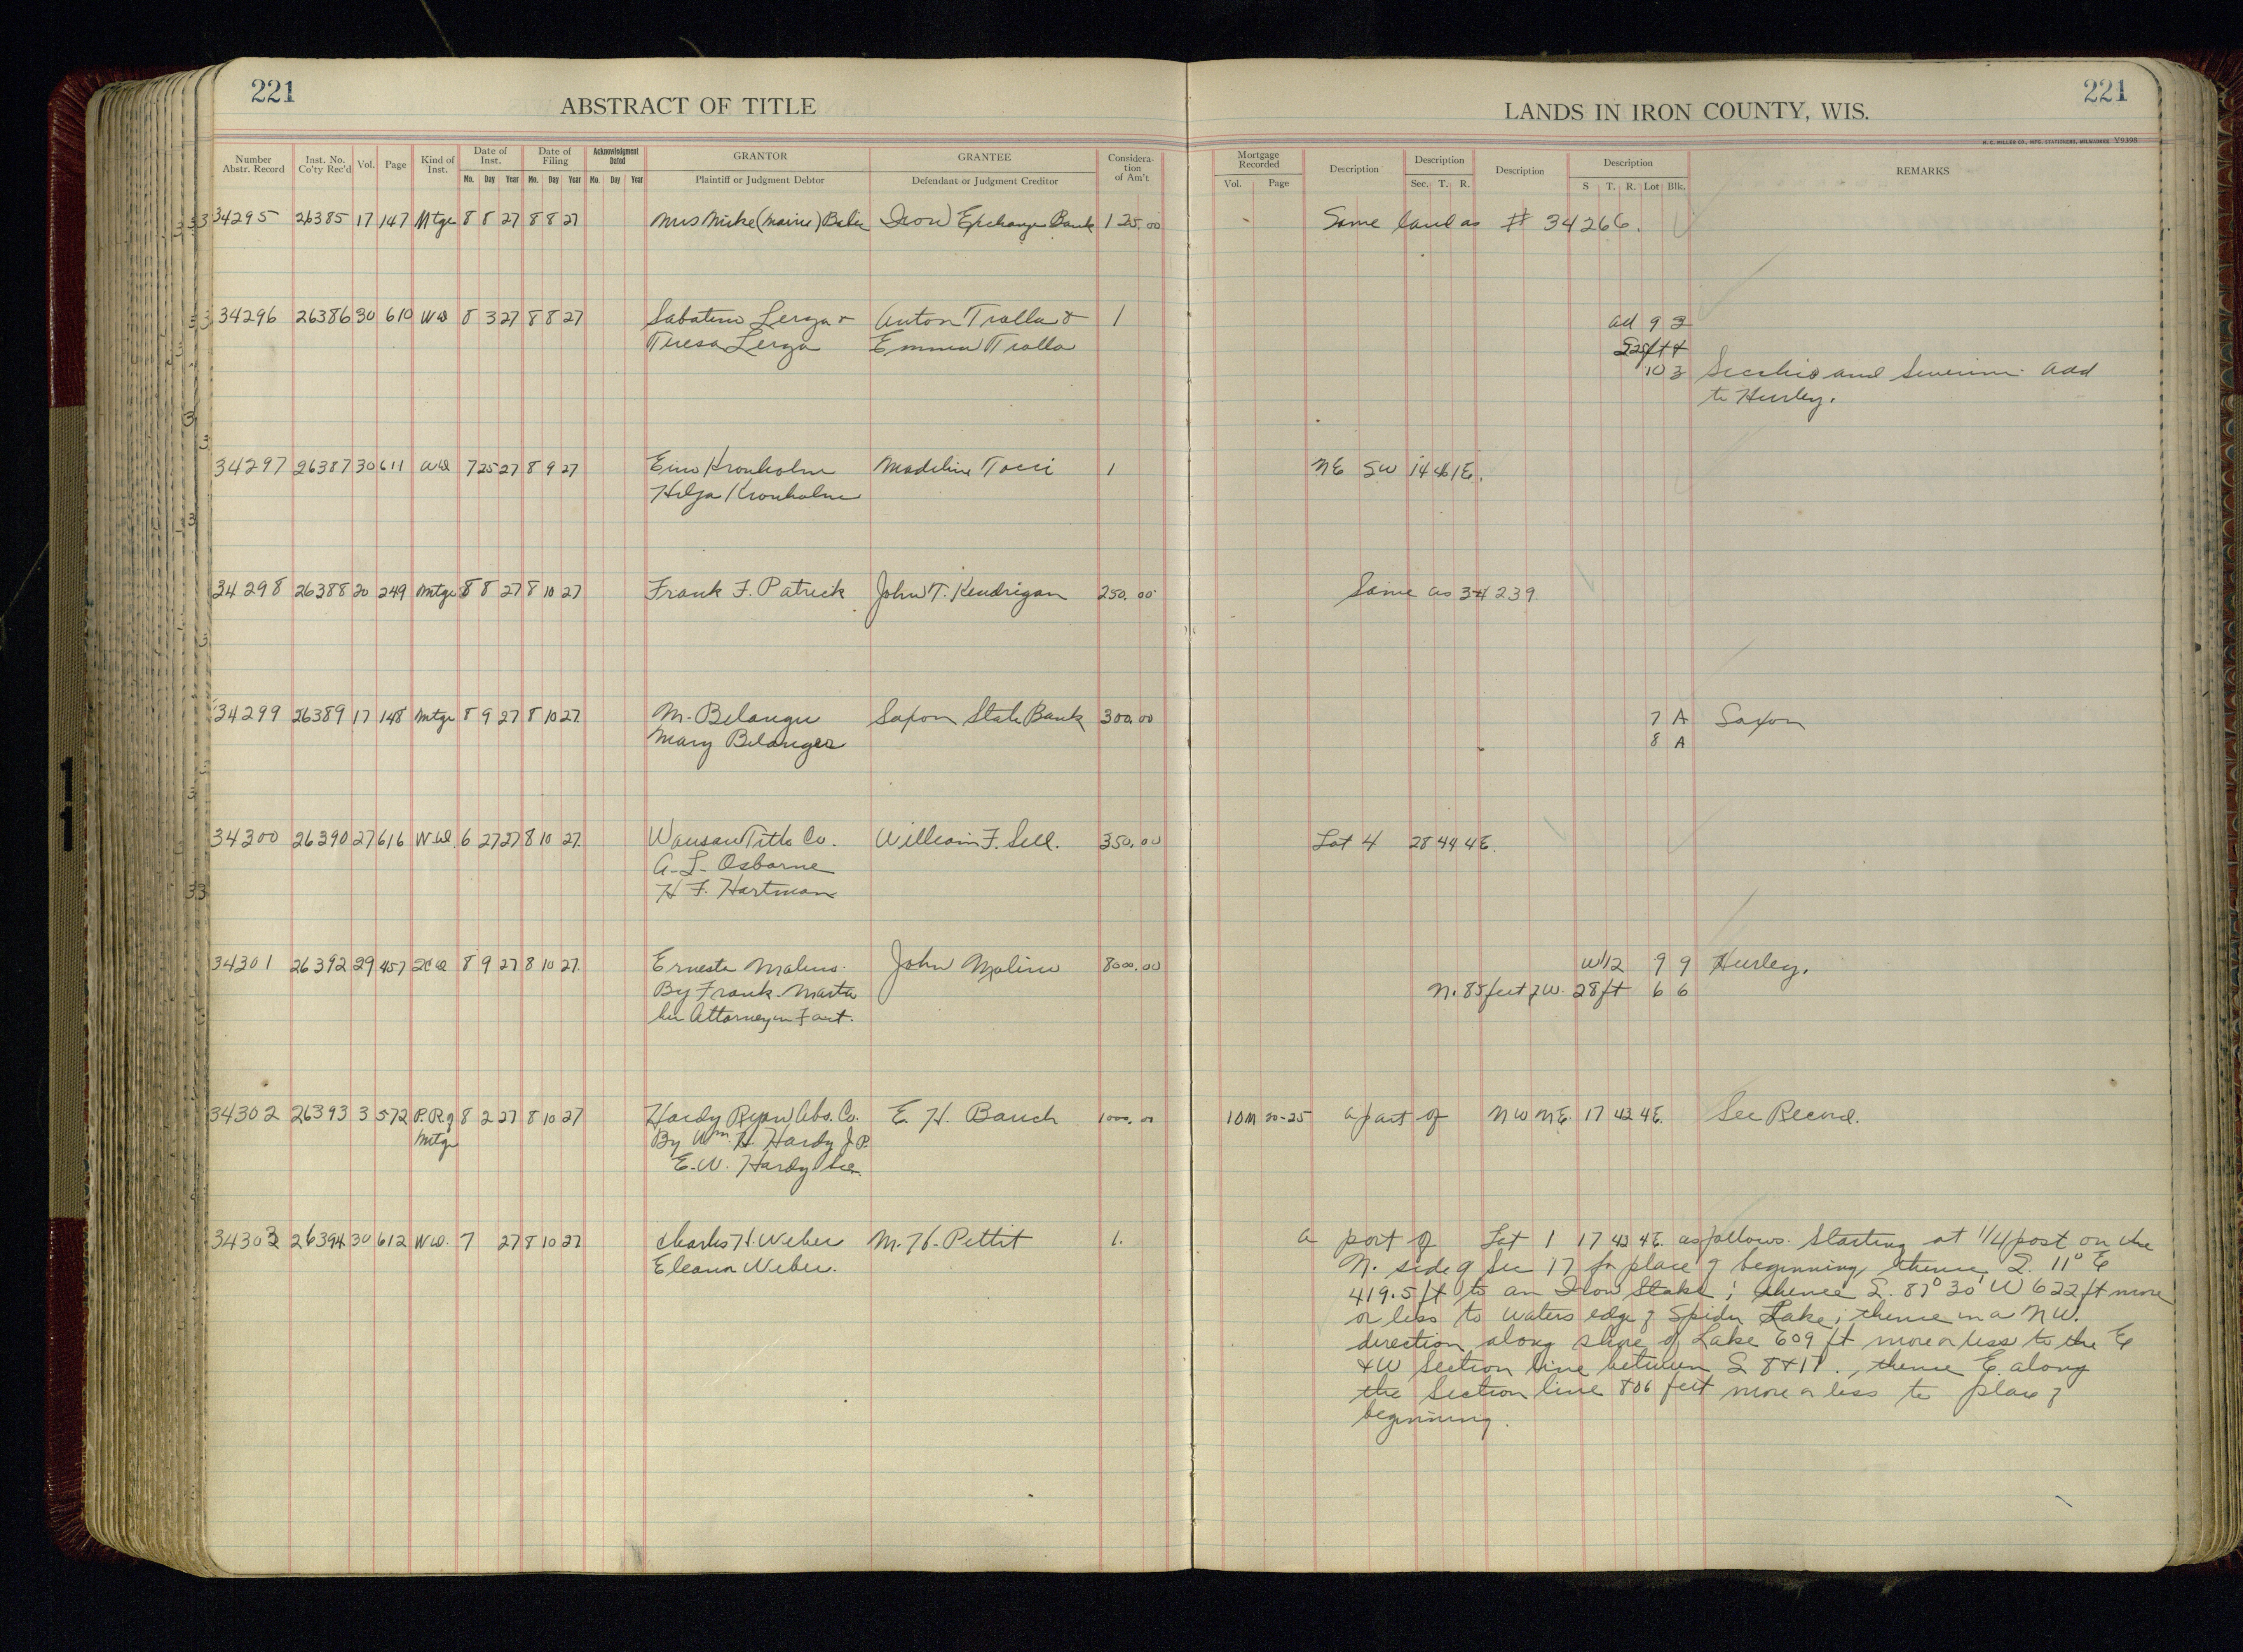 221
ABSTRACT OF TITLE
LANDS IN IRON COUNTY, WIS.
221
H. C. MILLER CO., MFG. STATIONERS, MILWAUKEE Y9398
Number Abstr. Record Inst. No. Co'ty Rec'd Vol. Page Kind of Inst. Date of Inst. Date of Filing Acknowledgment Dated GRANTOR GRANTEE Consideration of Am't Mortgage Recorded Description Description Description Description REMARKS
Mo. Day Year Mo. Day Year Mo. Day Year Plaintiff or Judgment Debtor Defendant or Judgment Creditor Vol. Page Sec. T. R. S T. R. Lot Blk.
34295 26385 17 147 Mtge 8 8 27 8 8 27 Mrs Mike (Marie) Iron Exchange Bank 125.00 Same land as # 34266.
34296 26386 30 610 WD 8 3 27 8 8 27 Sabatino Lerza & Anton Tralla & 1 all 9 3
Teresa Lerza Emma Tralla
10 3 Secchio and Severini add
to Hurley.
34297 26387 30 611 WD 7 25 27 8 9 27 Eino Kronholm Madeline Tocci 1 NE SW 14 46 1E.
Hilja Kronholm
34298 26388 20 249 Mtge 8 8 27 8 10 27 Frank F. Patrick John T. Kendrigan 250.00 Same as 34239
34299 26389 17 148 Mtge 8 9 27 8 10 27 M. Belanger Saxon State Bank 300.00 7 A Saxon
Mary Belanger 8 A
34300 26390 27 616 W.D. 6 27 27 8 10 27 Wausau Title Co. William F. Sell. 350.00 Lot 4 28 44 4E.
A. L. Osborne
H F. Hartman
34301 26392 29 457 8 9 27 8 10 27 Ernesta Molino John Molino 8000.00 W 1/2 9 9 Hurley.
By Frank N. 85 feet of W. 28 ft 6 6
her Attorney in Fact.
34302 26393 3 572 P. R of 8 2 27 8 10 27 Hardy Ryan Abs. Co. E. H. Bauch 1000.00 10M 20-25 a part of NW NE. 17 43 4E. See Record.
Mtge By Wm. H Hardy J. P.
E. W. Hardy Sec.
34303 26394 30 612 WD. 7 27 8 10 27 Charles H. Weber M. H. Pettit 1. a part of Lot 1 17 43 4E. as follows. Starting at 1/4 post on the
Eleanor Weber. N. side of Sec 17 for place of beginning, thence S. 11° E
419.5 ft to an Iron Stake; thence S. 87° 30' W 622 ft more
or less to waters edge of Spider Lake; thence in a NW.
direction along shore of Lake 609 ft more or less to the E
& W Section line between S 8 & 17., thence E. along
the Section line 806 feet more or less to place of
beginning.